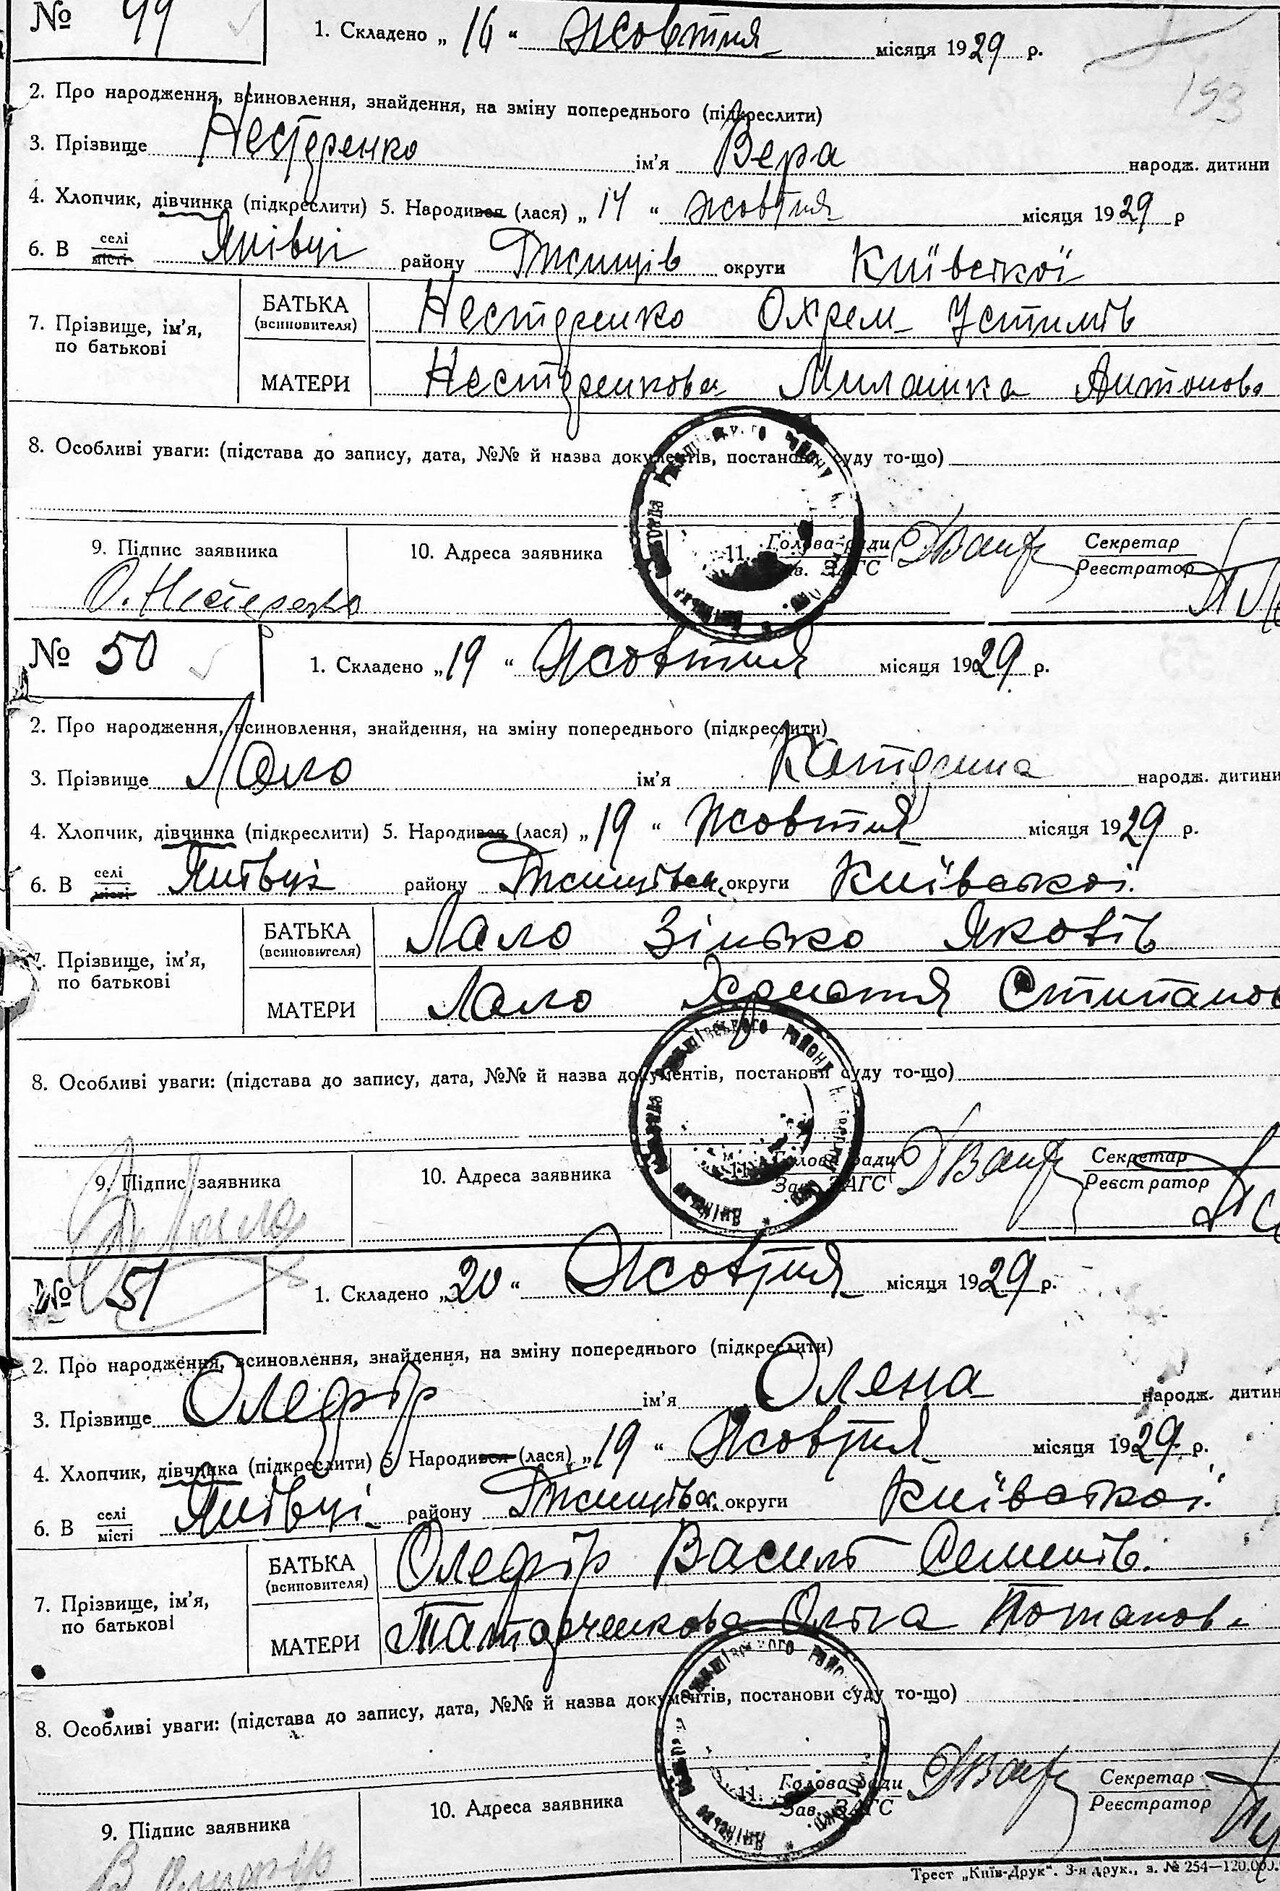 № 49 1. Складено „ 16 “ Жовтня місяця 1929 р.
193
2. Про народження, всиновлення, знайдення, на зміну попереднього (підкреслити)
3. Прізвище Нестеренко ім'я Вера народж. дитини
4. Хлопчик, дівчинка (підкреслити) 5. Народився (лася) „ 14 “ жовтня місяця 1929 р
6. В селі місті Янівці району Ржищів округи Київської
7. Прізвище, ім'я, по батькові БАТЬКА (всиновителя) Нестеренко Охрем Устимів
МАТЕРИ Нестеренкова Милашка Антонова
8. Особливі уваги: (підстава до запису, дата, №№ й назва документів, постанови суду то-що)
9. Підпис заявника 10. Адреса заявника 11. Голова ради Зав. ЗАГС Секретар Реєстратор
О. Нестеренко
№ 50 1. Складено „ 19 “ Жовтня місяця 1929 р.
2. Про народження, всиновлення, знайдення, на зміну попереднього (підкреслити)
3. Прізвище Лало ім'я Катерина народж. дитини
4. Хлопчик, дівчинка (підкреслити) 5. Народився (лася) „ 19 “ Жовтня місяця 1929 р.
6. В селі місті району округи Київської
7. Прізвище, ім'я, по батькові БАТЬКА (всиновителя) Лало Зінько Яковів
МАТЕРИ Лало Степанов
8. Особливі уваги: (підстава до запису, дата, №№ й назва документів, постанови суду то-що)
9. Підпис заявника 10. Адреса заявника 11. Голова ради Зав. ЗАГС Секретар Реєстратор
№ 51 1. Складено „ 20 “ Жовтня місяця 1929 р.
2. Про народження, всиновлення, знайдення, на зміну попереднього (підкреслити)
3. Прізвище Олефір ім'я Олена народж. дитин
4. Хлопчик, дівчинка (підкреслити) 5. Народився (лася) „ 19 “ Жовтня місяця 1929 р.
6. В селі місті району округи Київської
7. Прізвище, ім'я, по батькові БАТЬКА (всиновителя) Олефір Василь Семенів
МАТЕРИ Татарченкова Ольга Потапов
8. Особливі уваги: (підстава до запису, дата, №№ й назва документів, постанови суду то-що)
9. Підпис заявника 10. Адреса заявника 11. Голова ради Зав. ЗАГС Секретар Реєстратор
В Олефір
Трест „Київ-Друк“. 3-я друк., з. № 254—120.000.